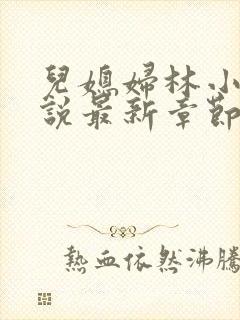 兒媳婦林小
說最新章節
熱血依然沸騰